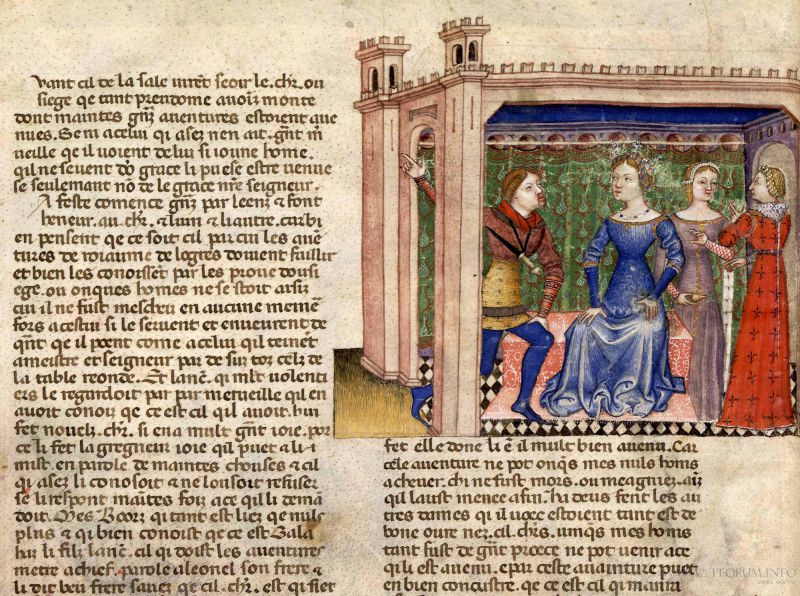 vant cil de la sale virẽt seoir le. chr̃. ou
siege qe tant preudome avoiẽt monte
dont maintes gñz aventures estoient ave
nues. Se ni a celui qi asez nen ait. gñt m̃
veille qe il voient de lui si ioune home.
qil ne sevent dõ grace li puese estre venue
se seulemant nõ de le grace nr̃e seigneur.
A feste comence gñz par leenz & font
heneur. au. chr̃. & luin & li autre. car bi
en pensent qe ce soit cil par cui les avẽ
tures de roiaume de logres doivent faillir
et bien les conoissẽt par les prove dou si
ege. ou onques homes ne se stoit assis
cui il ne fust mescheu en aucune memẽ
fors a cestui si le servent et enveurent de
qãnt qe il poent come a celui qil teinẽt
a meistre et seigneur par de sur toz celz de
la table reonde. Et lanc̃. qi mlt volenti
ers le regardoit par par merveille qil en
avoit conoiz qe ce est cil qil avoit. hui
fet novelx. chr̃. si en a mult gñt ioie. por
ce li fet la gregneur ioie qil puet & li i-
mist. en parole de maintes chouses & cil
qi asez li conosoit & ne lou soit refuser
se li respont maĩtes foiz a ce qil li dema
doit. Mes Boorz qi tant est liez qe nuls
plus & qi bien conoist qe ce est Gala
haz li filz lanc̃. cil qi doist les aventures
metre a chief. parole a leonel son frere &
li dit beu frere savez qe cil. chr̃. est qi siet
fet elle done li ẽ il mult bien avenu. Car
cele aventure ne pot onqs mes nuls homs
achever. chi ne fust mors. ou meagniez. aĩz
qil laust menee a fin. hi deus fent les au
tres dames qi il voec estoient tant est de
bone oure nez. cil. chr̃s. umqs mes homs
tant fust de gñt proece ne pot venir a ce
qi li est avenu. e par ceste avainture puet
en bien conoistre. qe ce est cil qi mainri
TEORUM.INFO